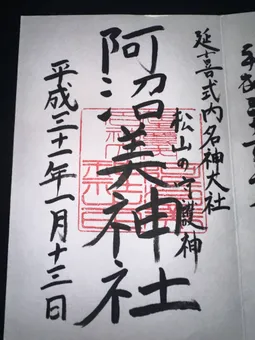 延喜式内名神大社
松山の守護神
阿沼美神社
平成三十一年一月十三日